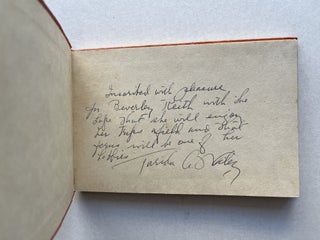 Inscribed with pleasure
for Beverley Keith with the
hope that she will enjoy
her trips afield and that
ferns will be one of her
hobbies